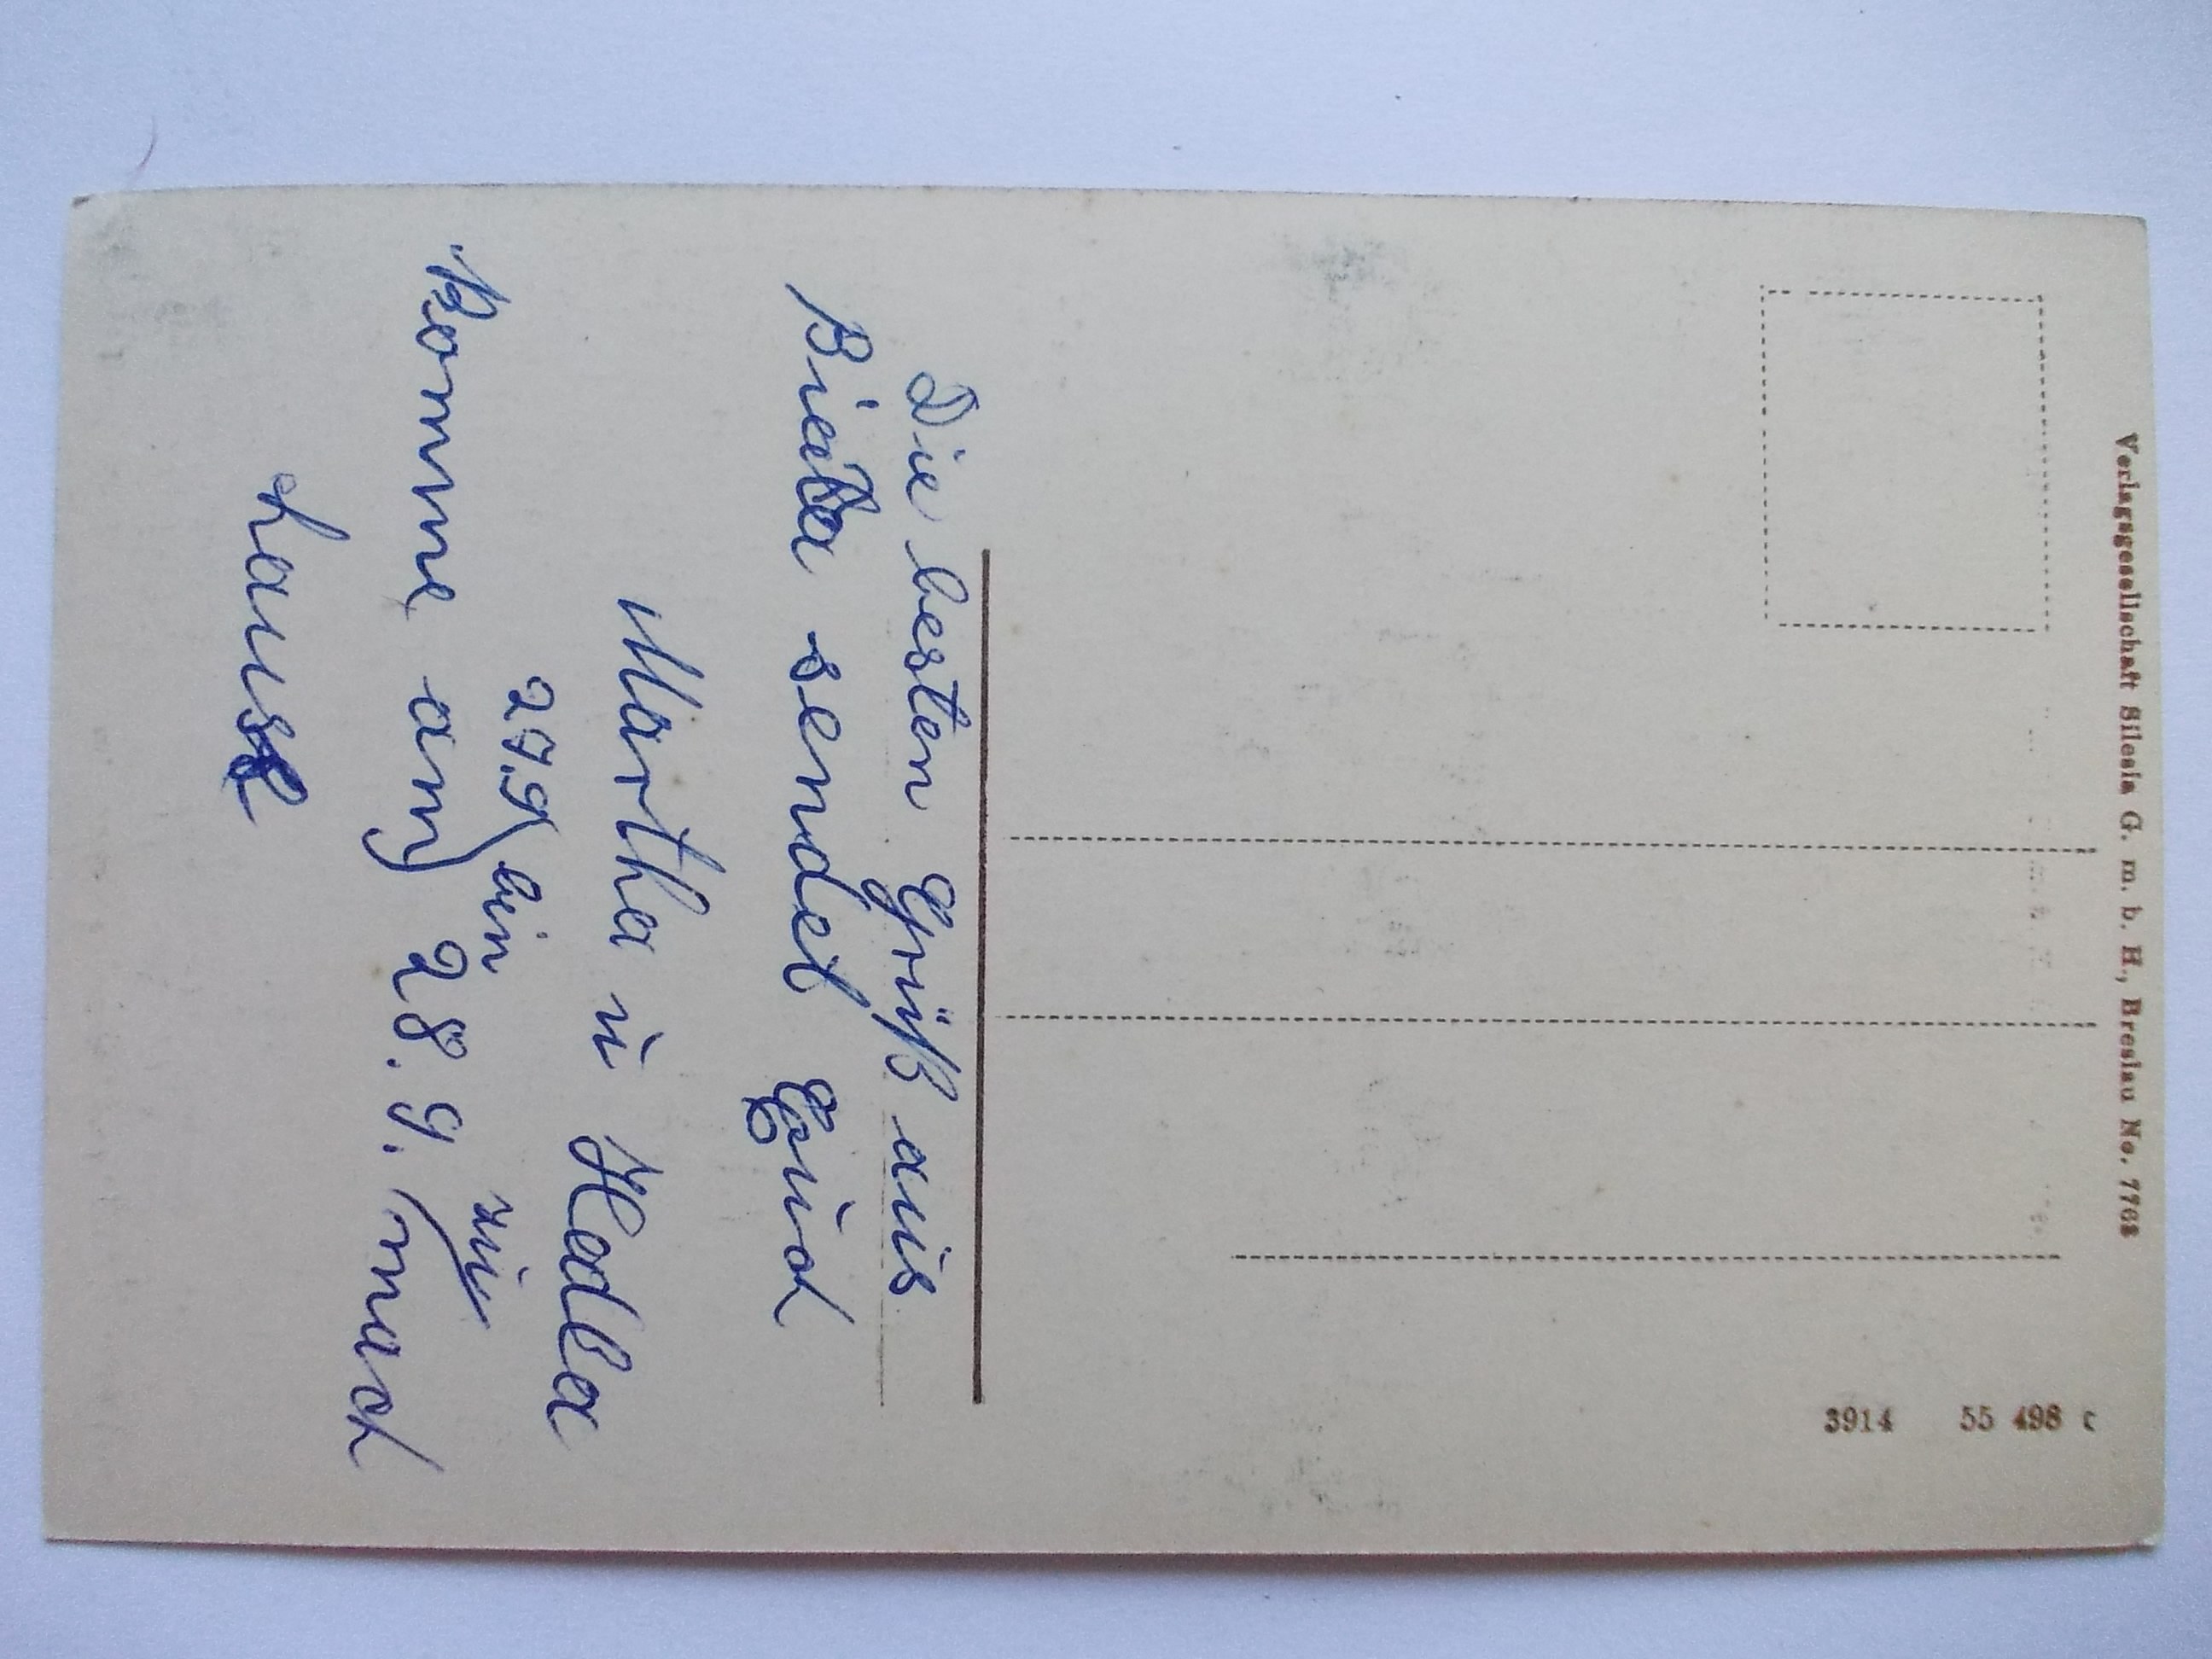 Die besten Grüß aus
Bieba sendet Euch
Martha u Hedla
27.9 bin zu
Komme am 28. 9. nach
hause
Verlagsgesellschaft Silesia G. m. b. H., Breslau No. 7768
3914 55 498 c